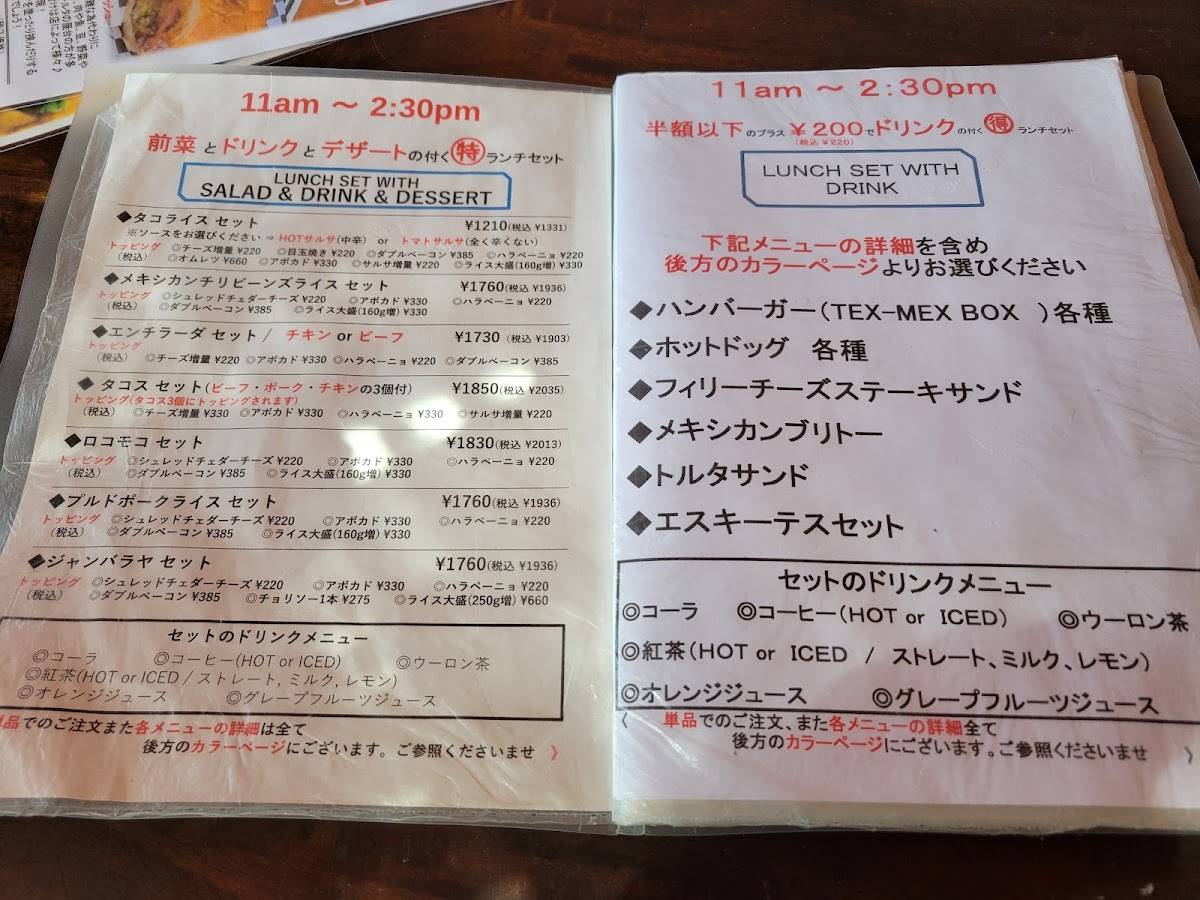 雑な為代わりに
、肉や魚、豆、野菜や
ルタの屋台の方が多
けは店によって様々♪
を塗ったり挟んだりする
11am ～ 2:30pm
前菜とドリンクとデザートの付く㊕ランチセット
LUNCH SET WITH
SALAD & DRINK & DESSERT
◆タコライス セット ¥1210(税込 ¥1331)
※ソースをお選びください ⇒ HOTサルサ(中辛) or トマトサルサ(全く辛くない)
トッピング ◎チーズ増量 ¥220 ◎目玉焼き ¥220 ◎ダブルベーコン ¥385 ◎ハラペーニョ ¥220
(税込) ◎オムレツ ¥660 ◎アボカド ¥330 ◎サルサ増量 ¥220 ◎ライス大盛(160g増) ¥330
◆メキシカンチリビーンズライス セット ¥1760(税込 ¥1936)
トッピング ◎シュレッドチェダーチーズ ¥220 ◎アボカド ¥330 ◎ハラペーニョ ¥220
(税込) ◎ダブルベーコン ¥385 ◎ライス大盛(160g増) ¥330
◆エンチラーダ セット / チキン or ビーフ ¥1730 (税込 ¥1903)
トッピング
(税込) ◎チーズ増量 ¥220 ◎アボカド ¥330 ◎ハラペーニョ ¥220 ◎ダブルベーコン ¥385
◆ タコス セット(ビーフ・ポーク・チキンの3個付) ¥1850(税込 ¥2035)
トッピング(タコス3個にトッピングされます)
(税込) ◎チーズ増量 ¥330 ◎アボカド ¥330 ◎ハラペーニョ ¥330 ◎サルサ増量 ¥220
◆ロコモコ セット ¥1830(税込 ¥2013)
トッピング ◎シュレッドチェダーチーズ ¥220 ◎アボカド ¥330 ◎ハラペーニョ ¥220
(税込) ◎ダブルベーコン ¥385 ◎ライス大盛(160g増) ¥330
◆プルドポークライス セット ¥1760(税込 ¥1936)
トッピング ◎シュレッドチェダーチーズ ¥220 ◎アボカド ¥330 ◎ハラペーニョ ¥220
(税込) ◎ダブルベーコン ¥385 ◎ライス大盛(160g増) ¥330
◆ジャンバラヤ セット ¥1760(税込 ¥1936)
トッピング ◎シュレッドチェダーチーズ ¥220 ◎アボカド ¥330 ◎ハラペーニョ ¥220
(税込) ◎ダブルベーコン ¥385 ◎チョリソー1本 ¥275 ◎ライス大盛(250g増) ¥660
セットのドリンクメニュー
◎コーラ ◎コーヒー(HOT or ICED) ◎ウーロン茶
◎紅茶(HOT or ICED / ストレート, ミルク, レモン)
◎オレンジジュース ◎グレープフルーツジュース
単品でのご注文また各メニューの詳細は全て
後方のカラーページにございます。ご参照くださいませ 》
11am ～ 2:30pm
半額以下のプラス¥200でドリンクの付く㊝ランチセット
(税込 ¥220)
LUNCH SET WITH
DRINK
下記メニューの詳細を含め
後方のカラーページよりお選びください
◆ハンバーガー(TEX-MEX BOX )各種
◆ホットドッグ 各種
◆フィリーチーズステーキサンド
◆メキシカンブリトー
◆トルタサンド
◆エスキーテスセット
セットのドリンクメニュー
◎コーラ ◎コーヒー(HOT or ICED) ◎ウーロン茶
◎紅茶(HOT or ICED / ストレート、ミルク、レモン)
◎オレンジジュース ◎グレープフルーツジュース
《 単品でのご注文、また各メニューの詳細全て
後方のカラーページにございます。ご参照くださいませ 》